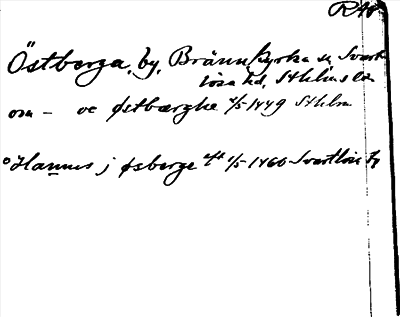 R 48
Östberga, by, Brännkyrka sn, Svart-
lösa hd, Sthlms län
om - oc østbærghe 4/5 1449 Sthlm
° Hannes j øsberge 1/5 1460 Svartlösa